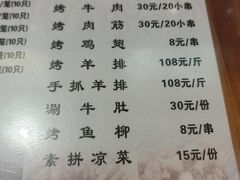 烤牛肉 30元/20小串
笼(10只) 烤肉筋 30元/20小串
笼(10只) 烤鸡翅 8元/串
笼(10只) 烤羊排 108元/斤
笼(10只) 手抓羊排 108元/斤
涮牛肚 30元/份
烤鱼柳 8元/串
素拼凉菜 15元/份